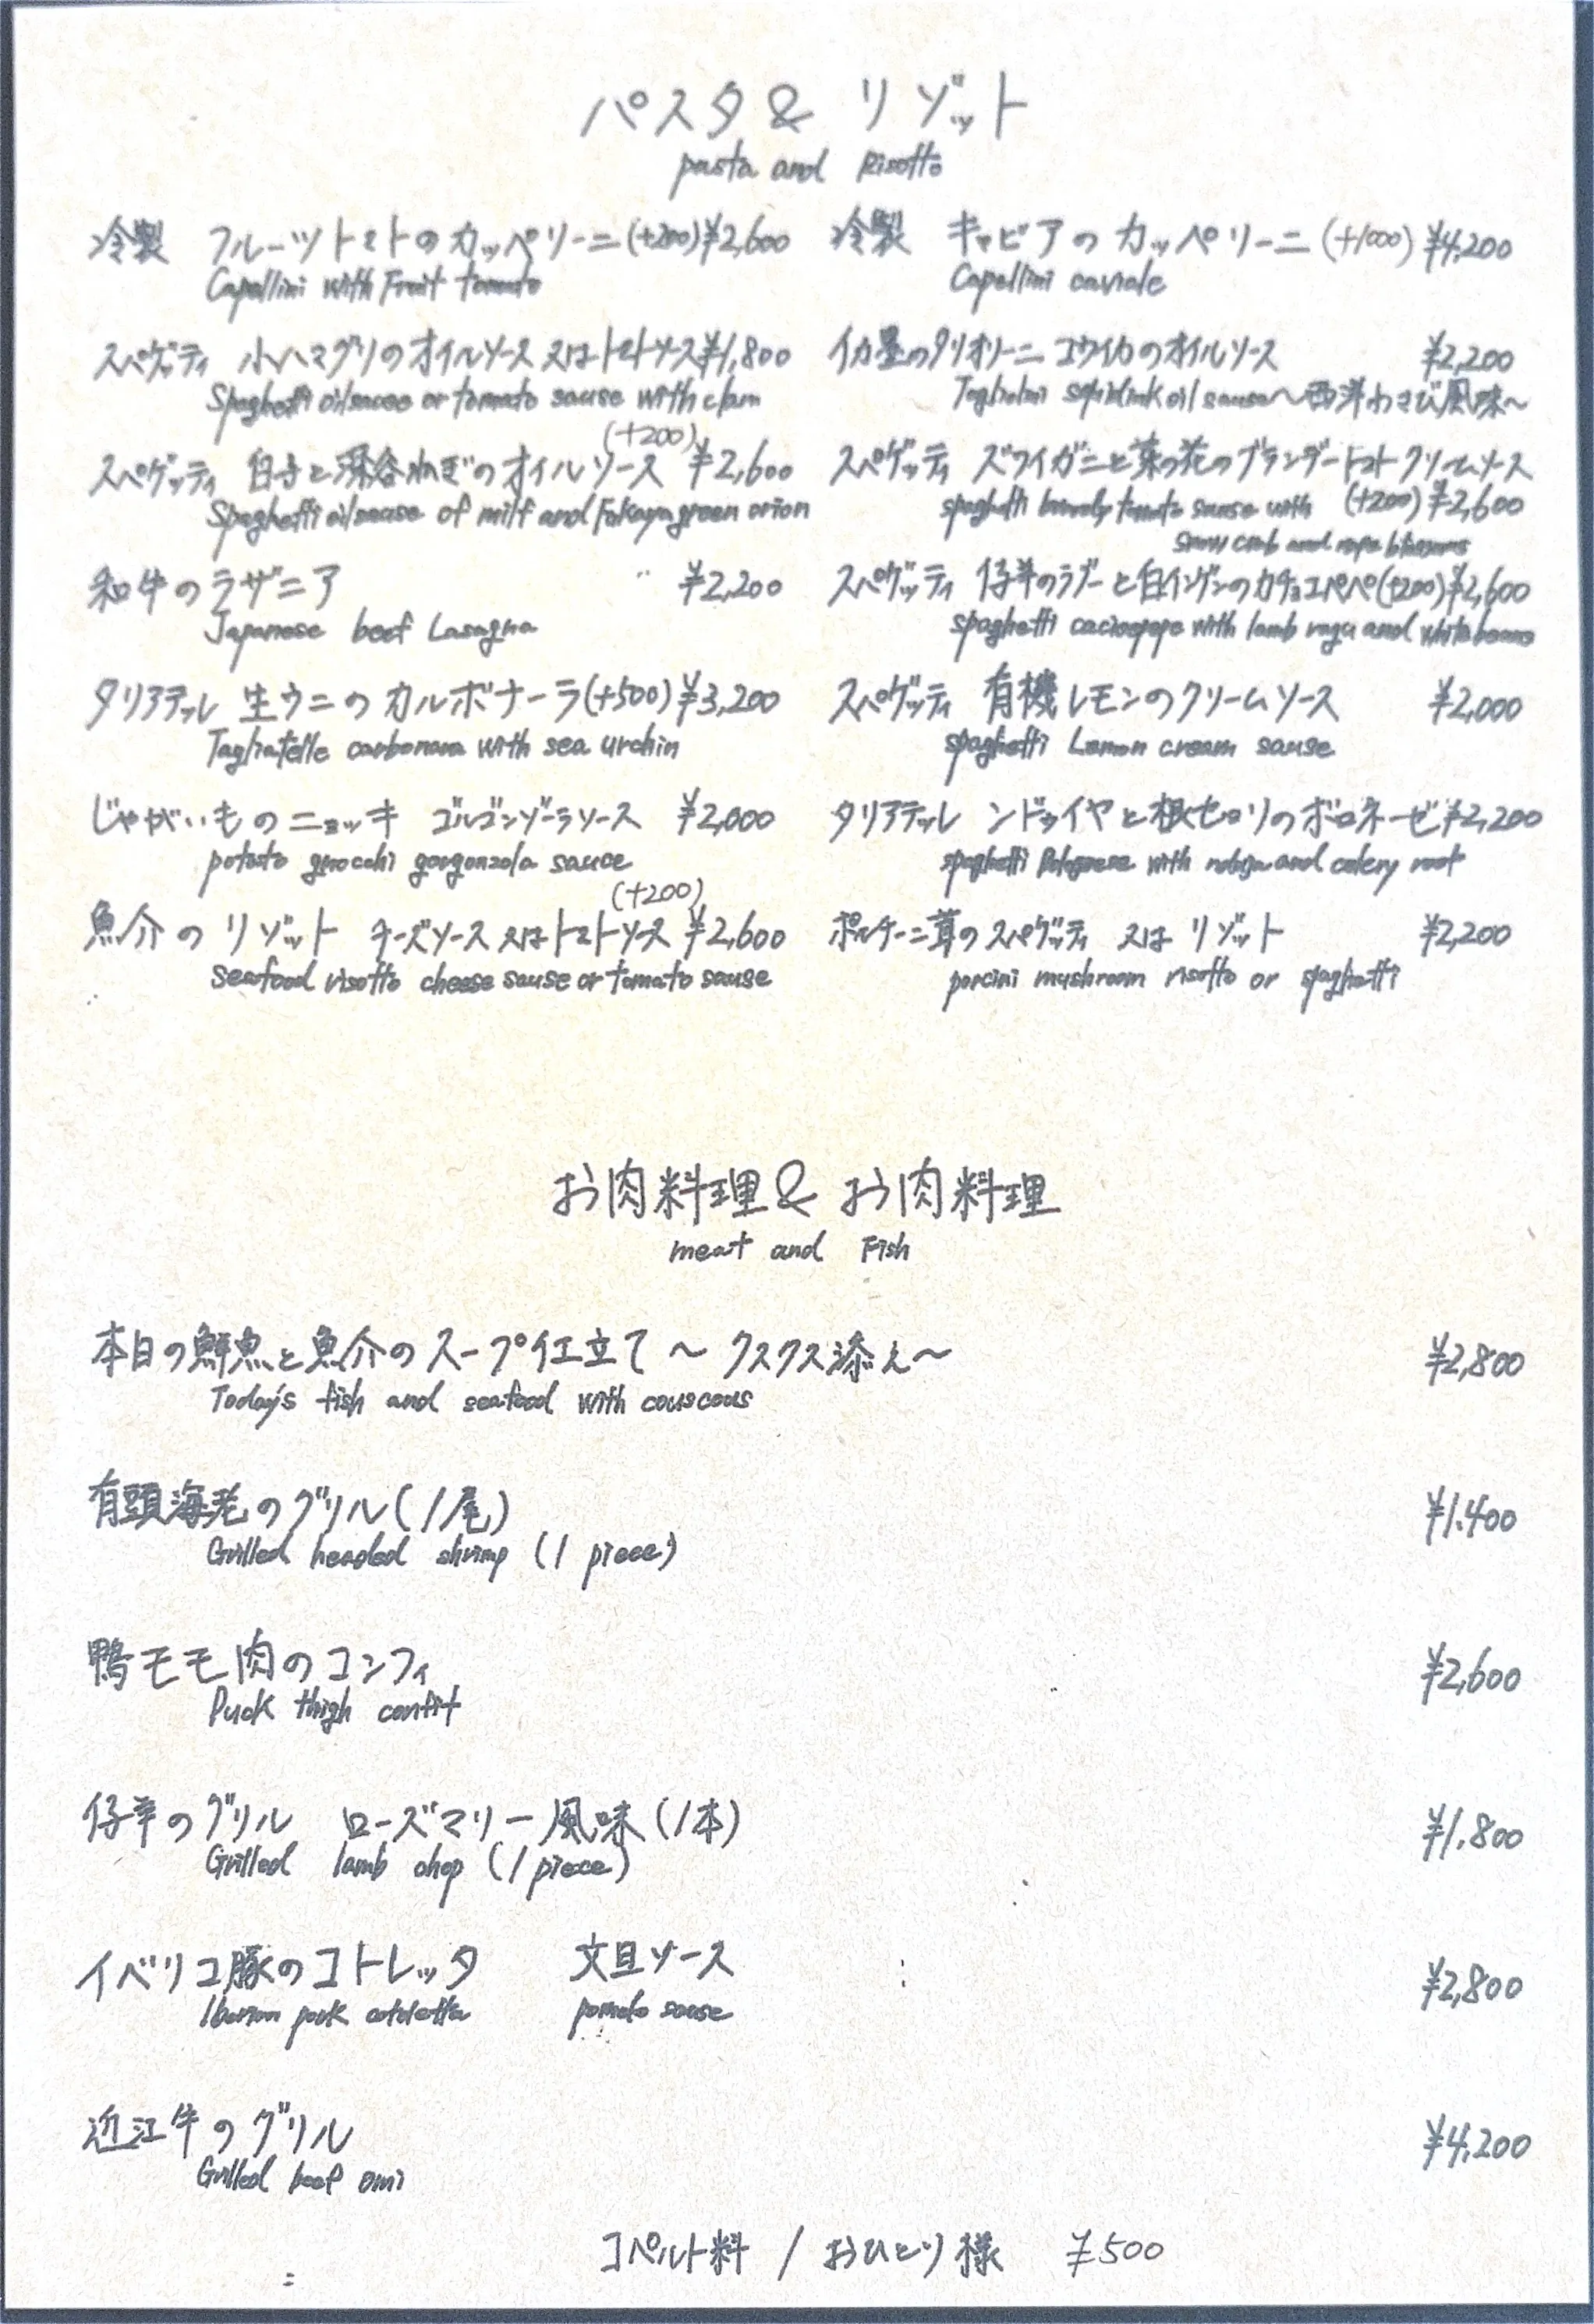 パスタ & リゾット
pasta and Risotto
冷製 フルーツトマトのカッペリーニ(+200)¥2,600
Capellini with Fruit tomato
スパゲッティ 小ハマグリのオイルソース 又は トマトソース¥1,800
Spaghetti oil sause or tomato sause with clam
(+200)
スパゲッティ 白子と深谷ねぎのオイルソース ¥2,600
Spaghetti oil sause of milt and Fukaya green onion
和牛のラザニア ¥2,200
Japanese beef Lasagna
タリアテッレ 生ウニのカルボナーラ(+500)¥3,200
Tagliatelle carbonara with sea urchin
じゃがいものニョッキ ゴルゴンゾーラソース ¥2,000
potato gnocchi gorgonzola sauce
(+200)
魚介のリゾット チーズソース 又は トマトソース ¥2,600
seafood risotto cheese sause or tomato sause
冷製 キャビアのカッペリーニ(+1000)¥4,200
Capellini caviale
イカ墨のタリオリーニ コウイカのオイルソース ¥2,200
oil sause〜西洋わさび風味〜
スパゲッティ ズワイガニと菜の花のブランデートマトクリームソース
spaghetti tomato sause with (+200)¥2,600
snow crab and
スパゲッティ 仔羊のラグーと白インゲンのカチョエペペ(+200)¥2,600
spaghetti caciopepe with lamb ragu and white beans
スパゲッティ 有機レモンのクリームソース ¥2,000
spaghetti Lemon cream sause
タリアテッレ ンドゥイヤと根セロリのボロネーゼ¥2,200
spaghetti Bolognese with nduja and celery root
ポルチーニ茸のスパゲッティ 又は リゾット ¥2,200
porcini mushroom risotto or spaghetti
お肉料理 & お肉料理
meat and Fish
本日の鮮魚と魚介のスープ仕立て 〜クスクス添え〜 ¥2,800
Today's fish and seafood with couscous
有頭海老のグリル(1尾) ¥1,400
Grilled headed shrimp (1 piece)
鴨モモ肉のコンフィ ¥2,600
Duck thigh confit
仔羊のグリル ローズマリー風味(1本) ¥1,800
Grilled lamb chop (1 piece)
イベリコ豚のコトレッタ 文旦ソース ¥2,800
pork pomelo sause
近江牛のグリル ¥4,200
Grilled beef omi
コペルト料 / おひとり様 ¥500